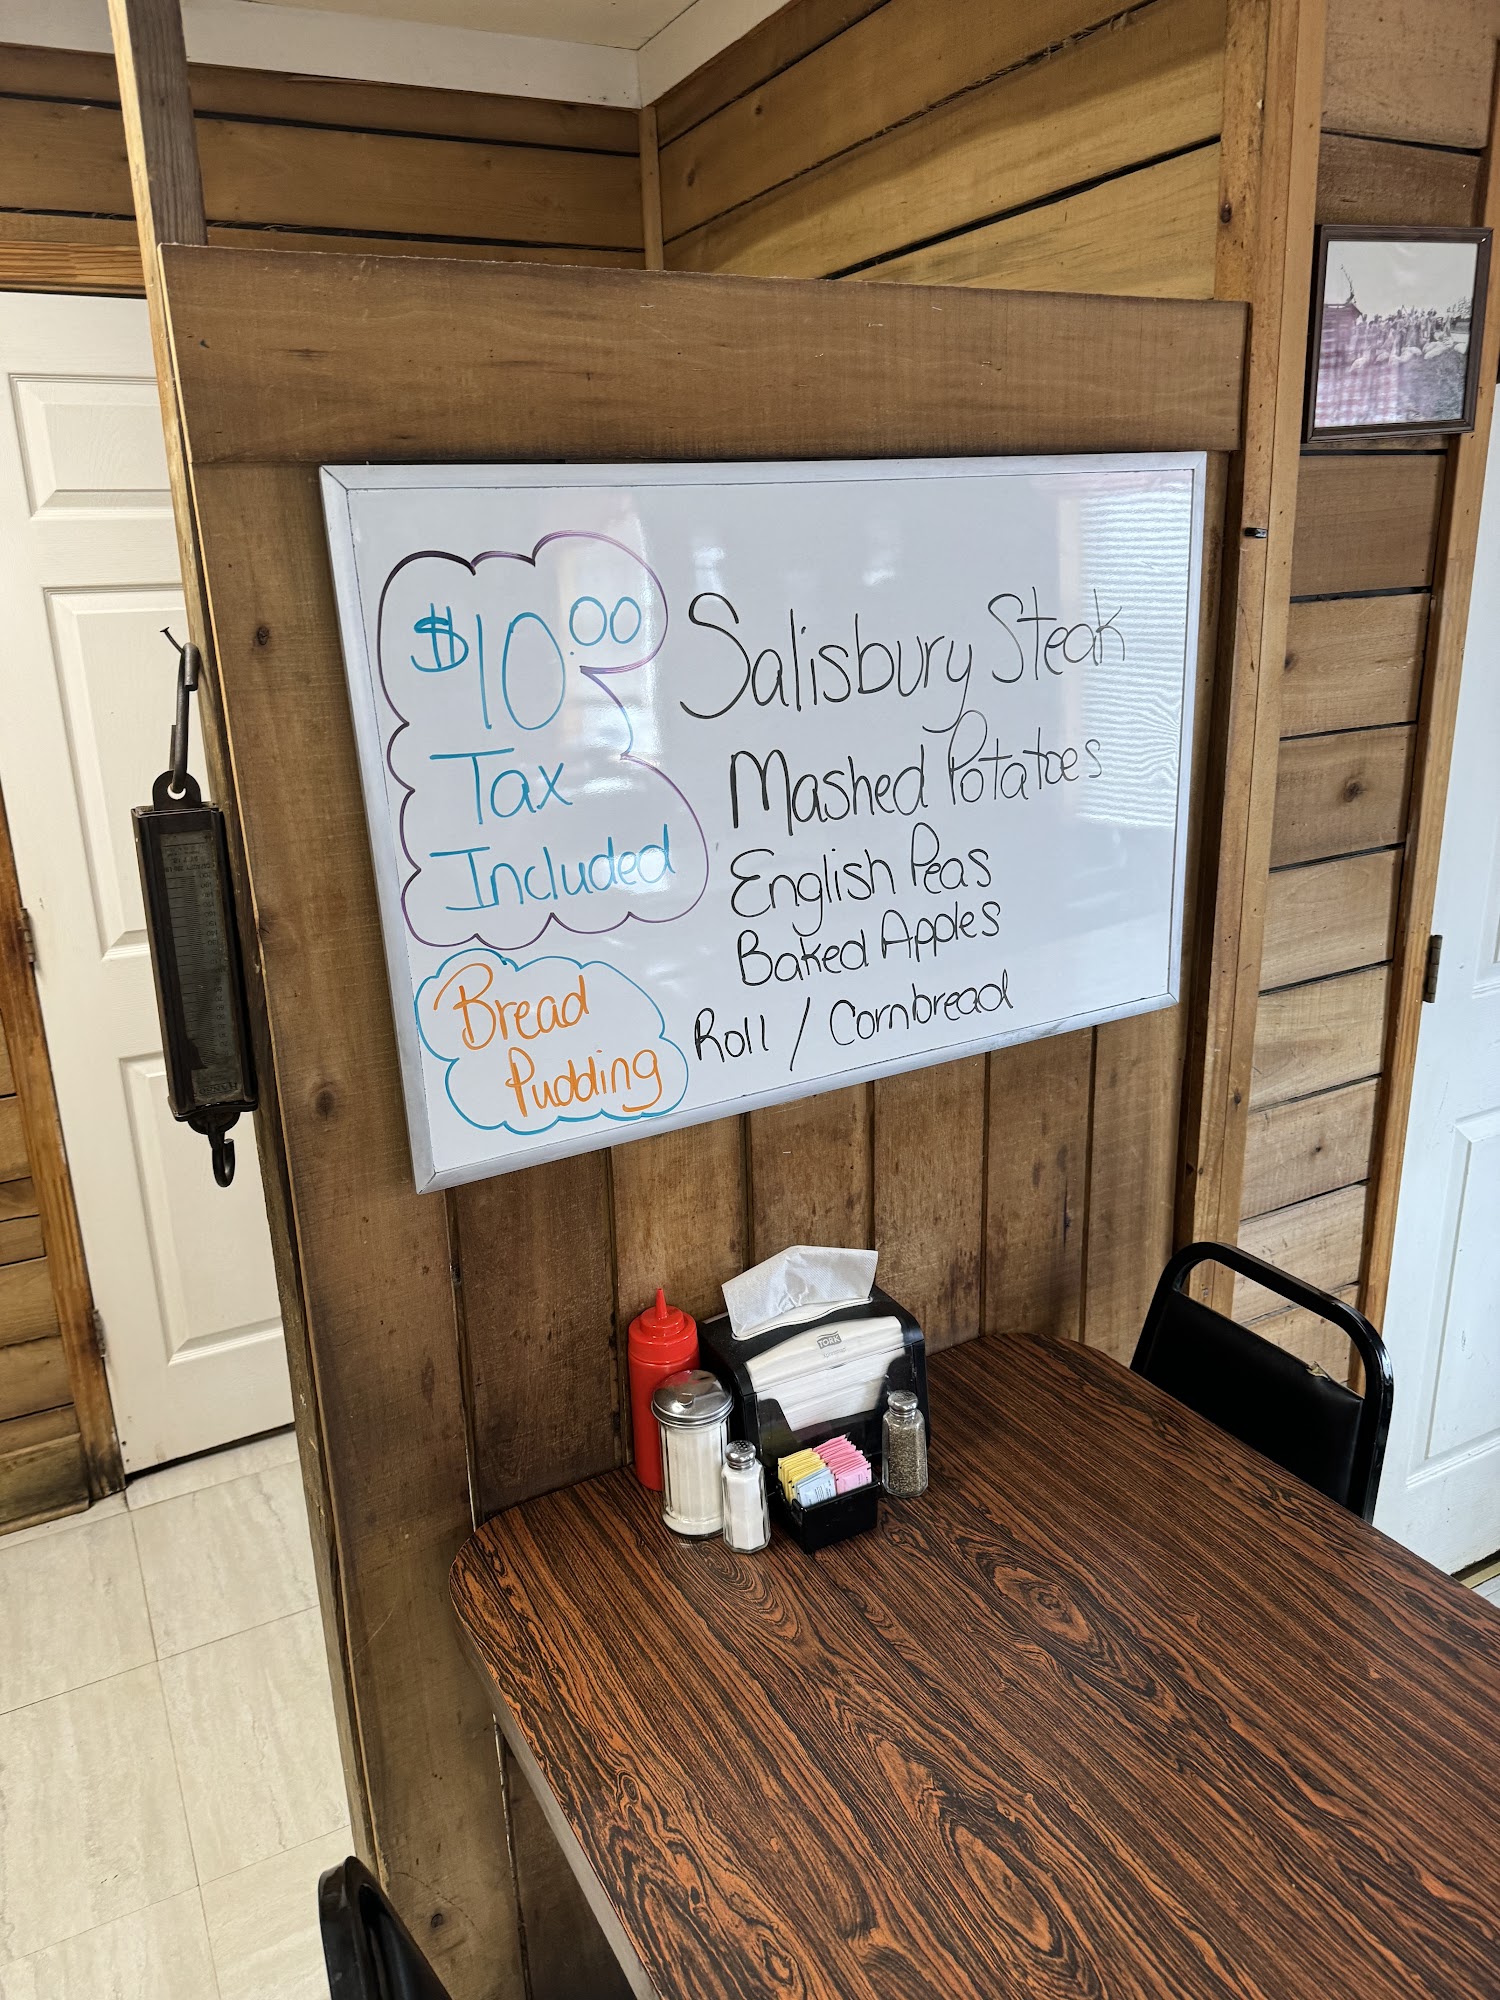 $10.00
Tax
Included
Bread
Pudding
Salisbury Steak
Mashed Potatoes
English Peas
Baked Apples
Roll / Cornbread
TORK